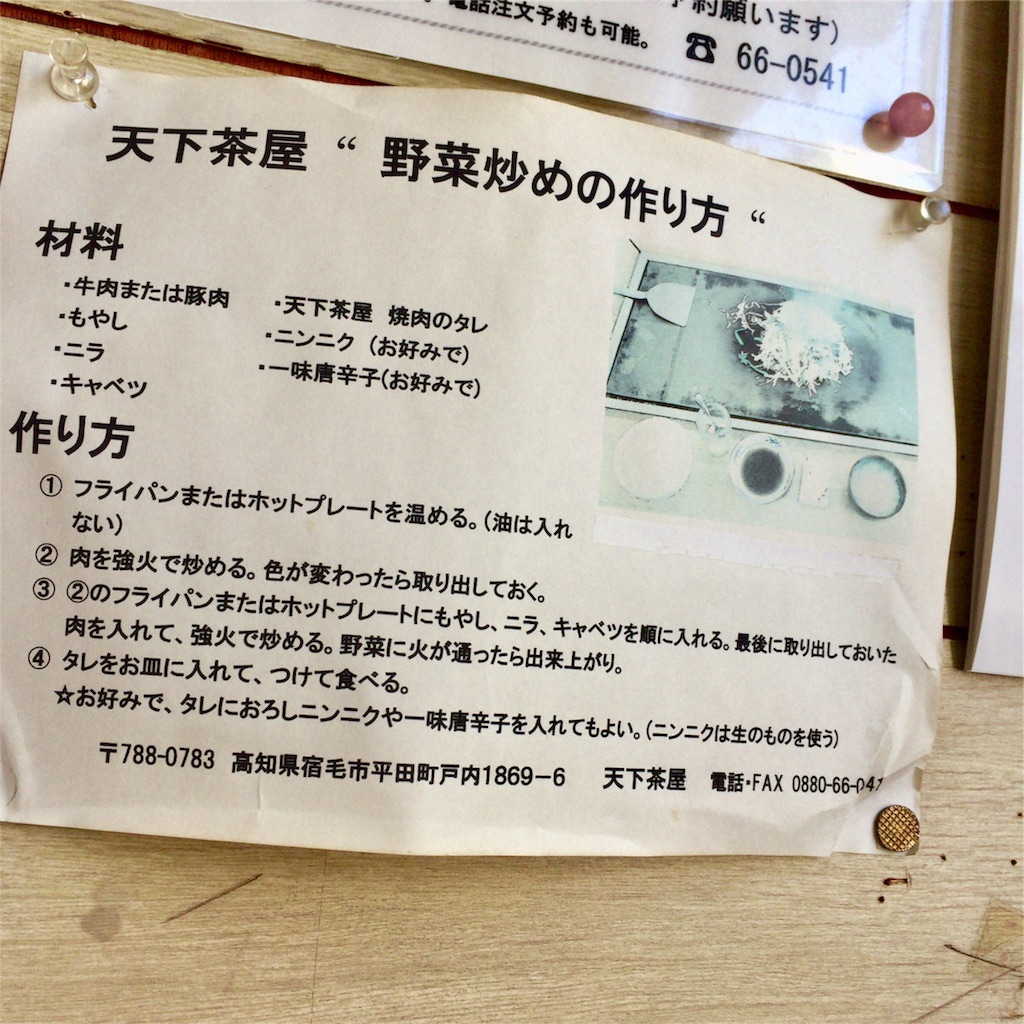 予約願います)
電話注文予約も可能。 ☎ 66-0541
天下茶屋 “ 野菜炒めの作り方 “
材料
・牛肉または豚肉
・もやし
・ニラ
・キャベツ
・天下茶屋 焼肉のタレ
・ニンニク (お好みで)
・一味唐辛子(お好みで)
作り方
① フライパンまたはホットプレートを温める。(油は入れ
ない)
② 肉を強火で炒める。色が変わったら取り出しておく。
③ ②のフライパンまたはホットプレートにもやし、ニラ、キャベツを順に入れる。最後に取り出しておいた
肉を入れて、強火で炒める。野菜に火が通ったら出来上がり。
④ タレをお皿に入れて、つけて食べる。
☆お好みで、タレにおろしニンニクや一味唐辛子を入れてもよい。(ニンニクは生のものを使う)
〒788-0783 高知県宿毛市平田町戸内1869-6 天下茶屋 電話・FAX 0880-66-